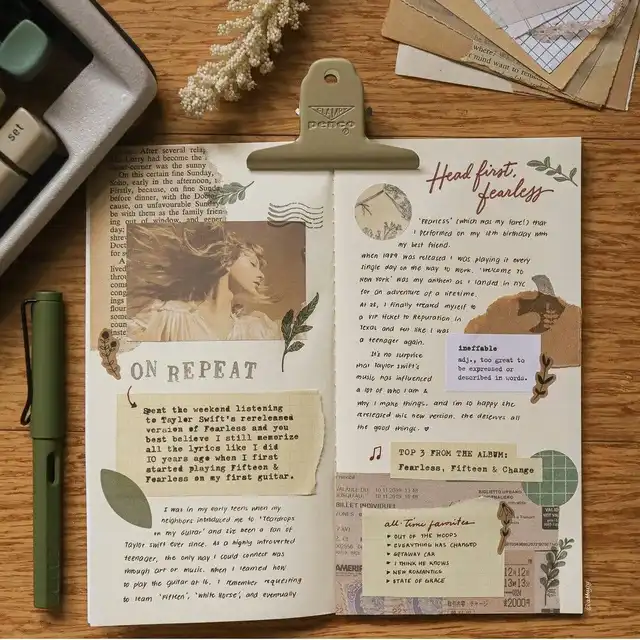 sel
where?
mind want to rem
After several
had become the
corner was the sunny
On this certain fine Sunday,
Soho, early in the afternoon,
Firstly, because, on fine Sunda
before dinner, with the Doc
cause, on unfavourable Sund
be with them as the family frien
ing out of window, and gener
day;
penco
ON REPEAT
Spent the weekend listening
to Taylor Swift's rereleased
version of Fearless and you
best believe I still memorize
all the lyrics like I did
10 years ago when I first
started playing Fifteen &
Fearless on my first guitar.
I was in my early teens when my
neighbors introduced me to 'Teardrops
on my Guitar' and I've been a fan of
Taylor Swift ever since. As a highly introverted
teenager, the only way I could connect was
through art or music. When I learned how
to play the guitar at 16, I remember requesting
to learn 'Fifteen', 'White Horse', and eventually
Head first,
fearless
'Fearless' (which was my fave!) that
I performed on my 18th birthday with
my best friend.
When 1989 was released I was playing it every
single day on my way to work. 'Welcome to
New York' was my anthem as I landed in NYC
for an adventure of a lifetime.
At 25, I finally treated myself to
a VIP ticket to Reputation in
Texas and felt like I was
a teenager again.
It's no surprise
that Taylor Swift's
music has influenced
a lot of who I am &
why I make things, and I'm so happy she
rereleased this new version. She deserves all
the good things.
ineffable
adj., too great to
be expressed or
described in words.
TOP 3 FROM THE ALBUM:
Fearless, Fifteen & Change
all-time favorites
OUT OF THE WOODS
EVERYTHING HAS CHANGED
GETAWAY CAR
I THINK HE KNOWS
NEW ROMANTICS
STATE OF GRACE